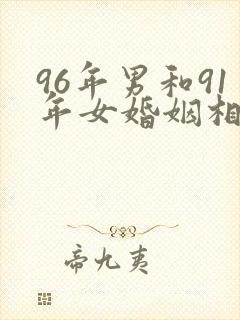 96年男和91
年女婚姻相
帝九夷